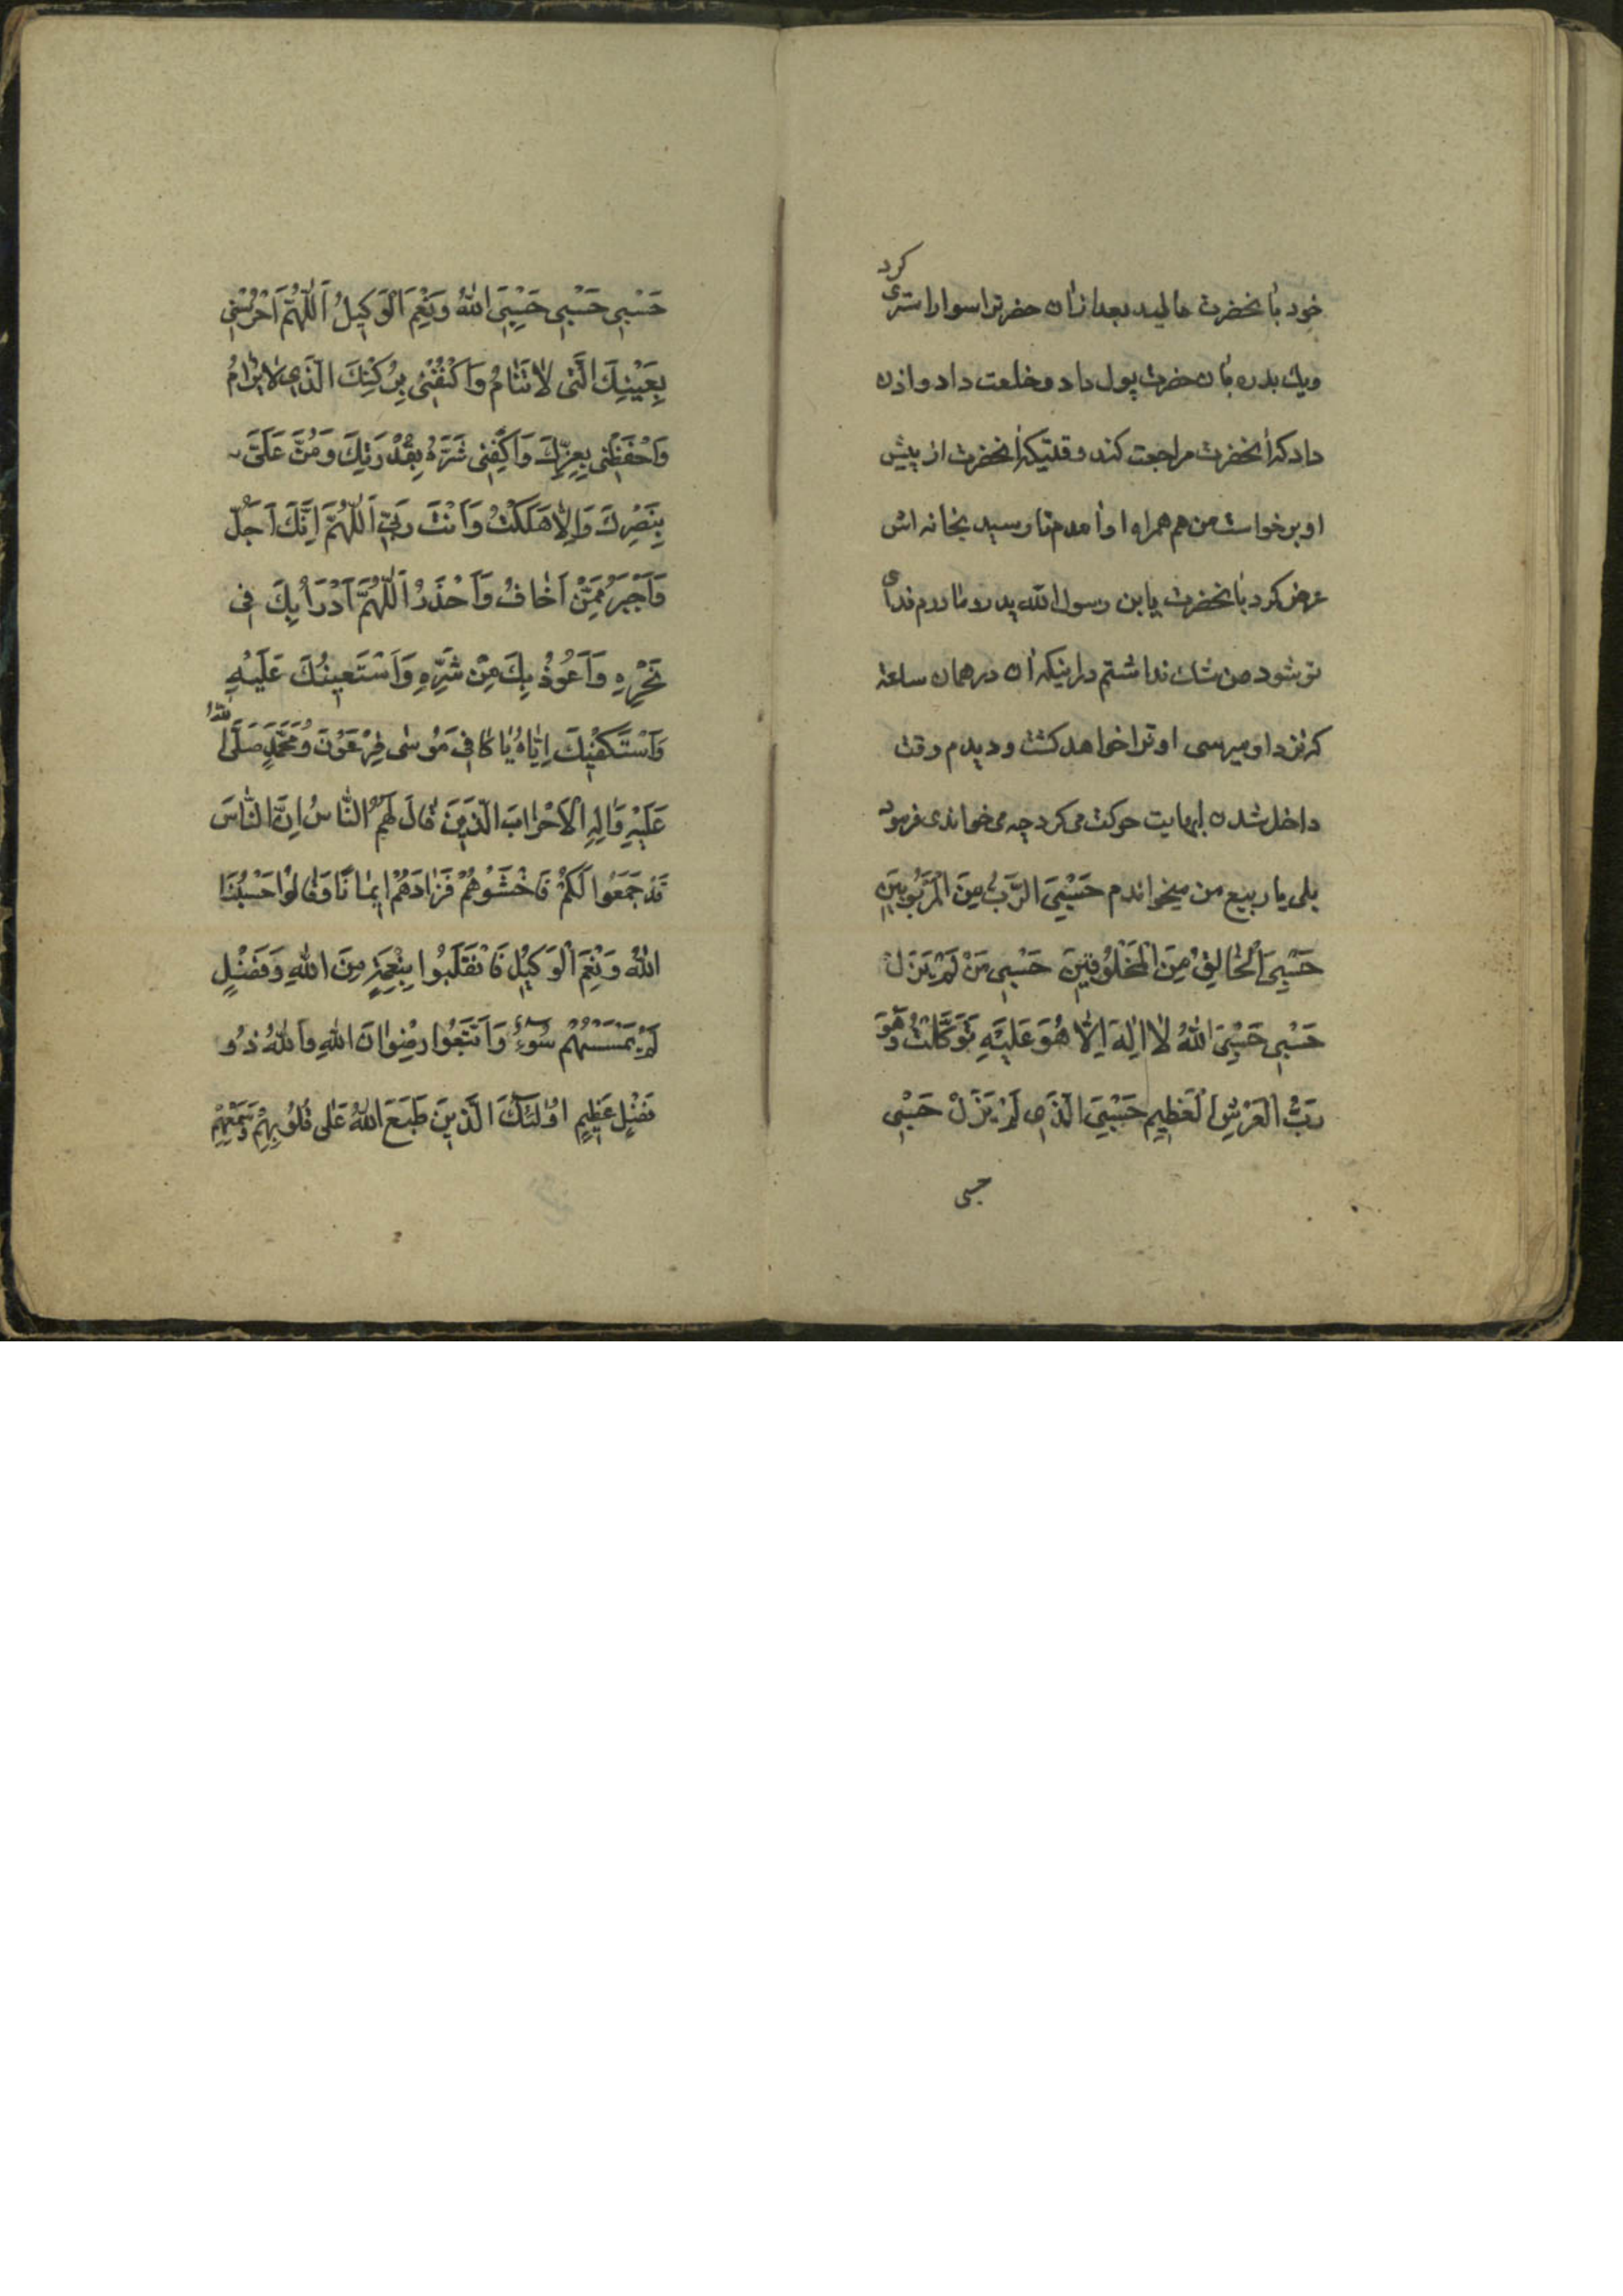 خود بآنحضرت مالید بعد ازآن حضرترا سوار استری کرد
ویك بدره بآن حضرت پول داد و خلعت داد و اذن
داد که آنحضرت مراجعت کند وقتیکه آنحضرت از پیش
او برخواست من هم همراه او آمدم تا رسید بخانه اش
عرض کرد بآنحضرت یابن رسول الله پدر و مادرم فدای
تو شود من شك نداشتم در اینکه آن در همان ساعة
که نزد او میرسی او ترا خواهد کشت و دیدم وقت
داخل شدن لبهایت حرکت می کرد چه می خواندی فرمود
بلی یا ربیع من میخواندم حَسْبِیَ الرَّبُّ مِنَ الْمَرْبُوبینَ
حَسْبِیَ الْخٰالِقُ مِنَ الْمَخْلُوقینَ حَسْبی مَنْ لَمْ یَزَلْ
حَسْبی حَسْبِیَ اللّٰهُ لٰا اِلٰهَ اِلّٰا هُوَ عَلَیْهِ تَوَکَّلْتُ وَهُوَ
رَبُّ الْعَرْشِ الْعَظیمِ حَسْبِیَ الَّذی لَمْ یَزَلْ حَسْبی
حسبی
حَسْبی حَسْبی حَسْبِیَ اللّٰهُ وَنِعْمَ الْوَکیلُ اَللّٰهُمَّ احْرُسْنی
بِعَیْنِكَ الَّتی لٰا تَنٰامُ وَاکْنُفْنی بِرُکْنِكَ الَّذی لٰا یُرٰامُ
وَاحْفَظْنی بِعِزِّكَ وَاکْفِنی شَرَّهُ بِقُدْرَتِكَ وَمُنَّ عَلَیَّ
بِنَصْرِكَ وَاِلّٰا هَلَکْتُ وَاَنْتَ رَبّی اَللّٰهُمَّ اِنَّكَ اَجَلُّ
وَاَجْبَرُ مِمَّنْ اَخٰافُ وَاَحْذَرُ اَللّٰهُمَّ اَدْرَاُ بِكَ فی
نَحْرِهِ وَاَعُوذُ بِكَ مِنْ شَرِّهِ وَاَسْتَعینُكَ عَلَیْهِ
وَاَسْتَکْفیكَ اِیّٰاهُ یٰا کٰافِیَ مُوسٰی فِرْعَوْنَ وَمُحَمَّدٍ صَلَّی اللّٰهُ
عَلَیْهِ وَاٰلِهِ الْاَحْزٰابَ الَّذینَ قٰالَ لَهُمُ النّٰاسُ اِنَّ النّٰاسَ
قَدْ جَمَعُوا لَکُمْ فَاخْشَوْهُمْ فَزٰادَهُمْ ایمٰانًا وَقٰالُوا حَسْبُنَا
اللّٰهُ وَنِعْمَ الْوَکیلُ فَانْقَلَبُوا بِنِعْمَةٍ مِنَ اللّٰهِ وَفَضْلٍ
لَمْ یَمْسَسْهُمْ سُوءٌ وَاتَّبَعُوا رِضْوٰانَ اللّٰهِ وَاللّٰهُ ذُو
فَضْلٍ عَظیمٍ اُولٰئِكَ الَّذینَ طَبَعَ اللّٰهُ عَلٰی قُلُوبِهِمْ وَسَمْعِهِمْ